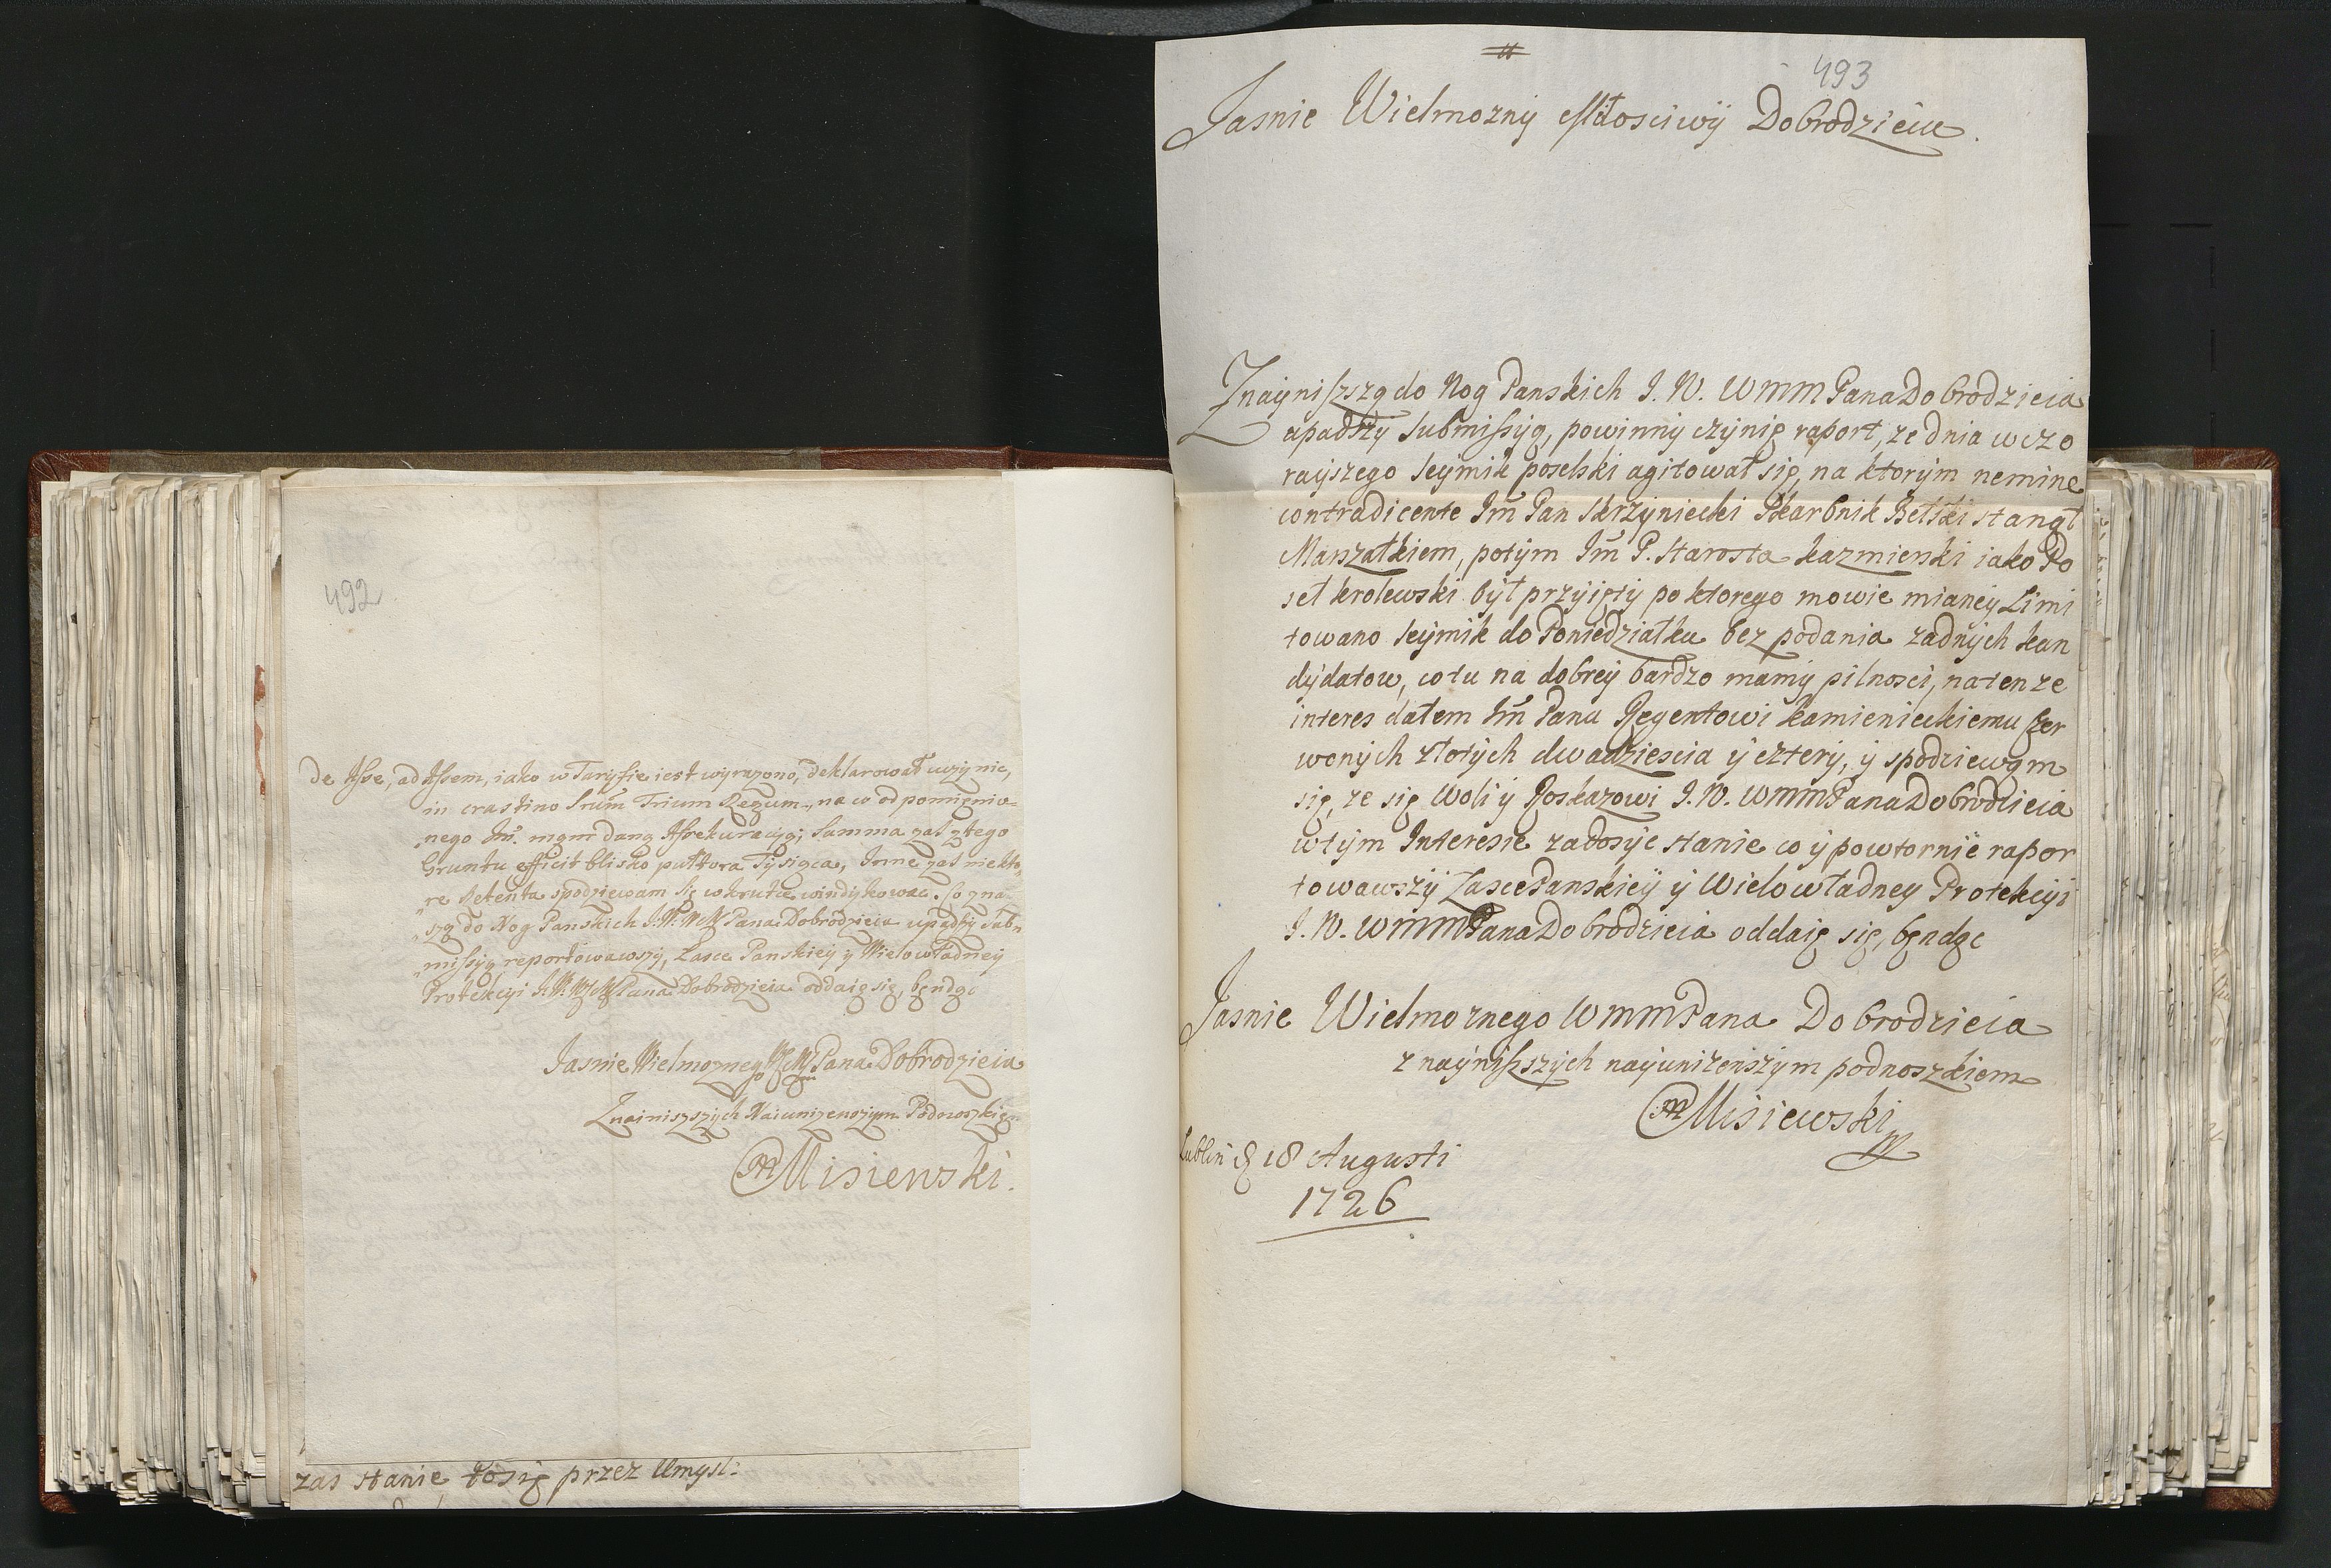 492
de Asse, ad Assem, iako w Taryfie iest wyrazono, deklarował uczynic,
in crastino Srum Trium Regum, na co od pomięnio-
nego Im. mąm daną Assekuracyą; Summa zas z tego
Gruntu efficit blisko pułtora Tysiąca, Inne zas niekto,
re Retenta spodziewam się wkrutce windykowac. Co znai
szą do Nog Panskich J. W. WMM Pana Dobrodzieia upadszy sub
missyą reportowawszy, Łasce Panskiey y Wielowładney
Protekcyi J. W. WMM Pana Dobrodzieia oddaię się, będąc
Jasnie Wielmoznego WMM Pana Dobrodzieia
Znainiszszych Naiunizenszym Podnoszkięm
Misiewski.
zas stanie, tosię przez Umysl:
493
Jasnie Wielmozny Miłosciwÿ Dobrodzieiu.
Znaÿnissszą do Nog Panskich J. W. WMM Pana Dobrodzieia
upadszy submissyą, powinny czynię raport, ze dnia wczo
raÿszego Seymik poselski agitował się, na ktorym nemine
contradicente Im Pan Skrzyniecki Skarbnik Bełski stanął
Marszałkiem, potym Im P. Starosta kazmirski iako Po
seł krolewski był przyięty po ktorego mowie mianey Limi
towano Seymik do Poniedziałku bez podania zadnych kan
dydatow, co tu na dobrey bardzo mamy pilnosci, na ten ze
interes dałem Im Panu Regentowi kamienieckiemu czer
wonych złotych dwadziescia y cztery, y spodziewąm
się, ze się Woli y Roskazowi J. W. WMM Pana Dobrodzieia
w tym Interesie zadosyc stanie co y powtornie rapor
towawszÿ Łasce Panskieÿ y Wielowładney Protekcyi
J. W. WMM Pana Dobrodzieia oddaię się, będąc
Jasnie Wielmoznego WMM Pana Dobrodzieia
z naynisszych nayunizenszym podnoszkiem
Misiewski
Lublin d 18 Augusti
1726